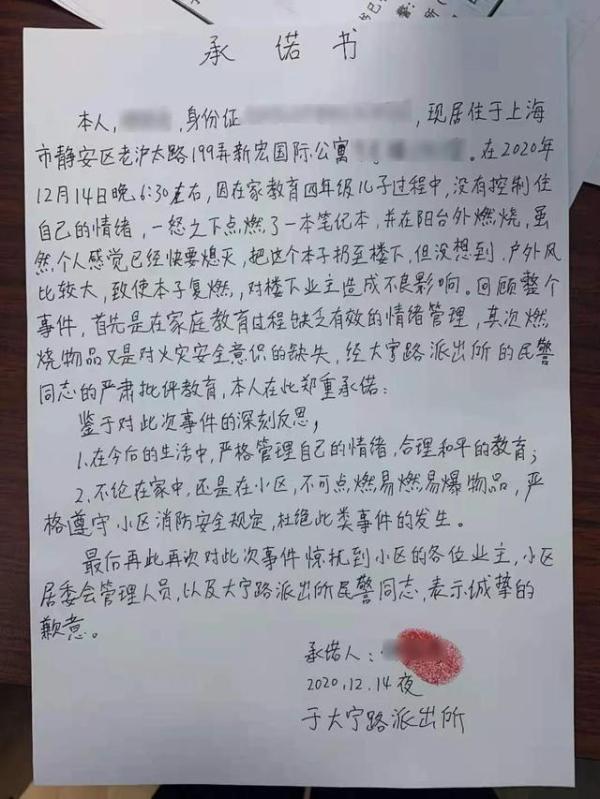 承诺书
本人, ,身份证 ,现居住于上海
市静安区老沪太路199弄新宏国际公寓 。在2020年
12月14日晚6:30左右,因在家教育四年级儿子过程中,没有控制住
自己的情绪,一怒之下点燃了一本笔记本,并在阳台外燃烧,虽
然个人感觉已经快要熄灭,把这个本子扔至楼下,但没想到,户外风
比较大,致使本子复燃,对楼下业主造成不良影响。回顾整个
事件,首先是在家庭教育过程缺乏有效的情绪管理,其次燃
烧物品又是对火灾安全意识的缺失,经大宁路派出所的民警
同志的严肃批评教育,本人在此郑重承诺:
鉴于对此次事件的深刻反思,
1.在今后的生活中,严格管理自己的情绪,合理和平的教育;
2.不论在家中,还是在小区,不可点燃易燃易爆物品,严
格遵守小区消防安全规定,杜绝此类事件的发生。
最后再此再次对此次事件惊扰到小区的各位业主,小区
居委会管理人员,以及大宁路派出所民警同志,表示诚挚的
歉意。
承诺人:
2020.12.14夜
于大宁路派出所